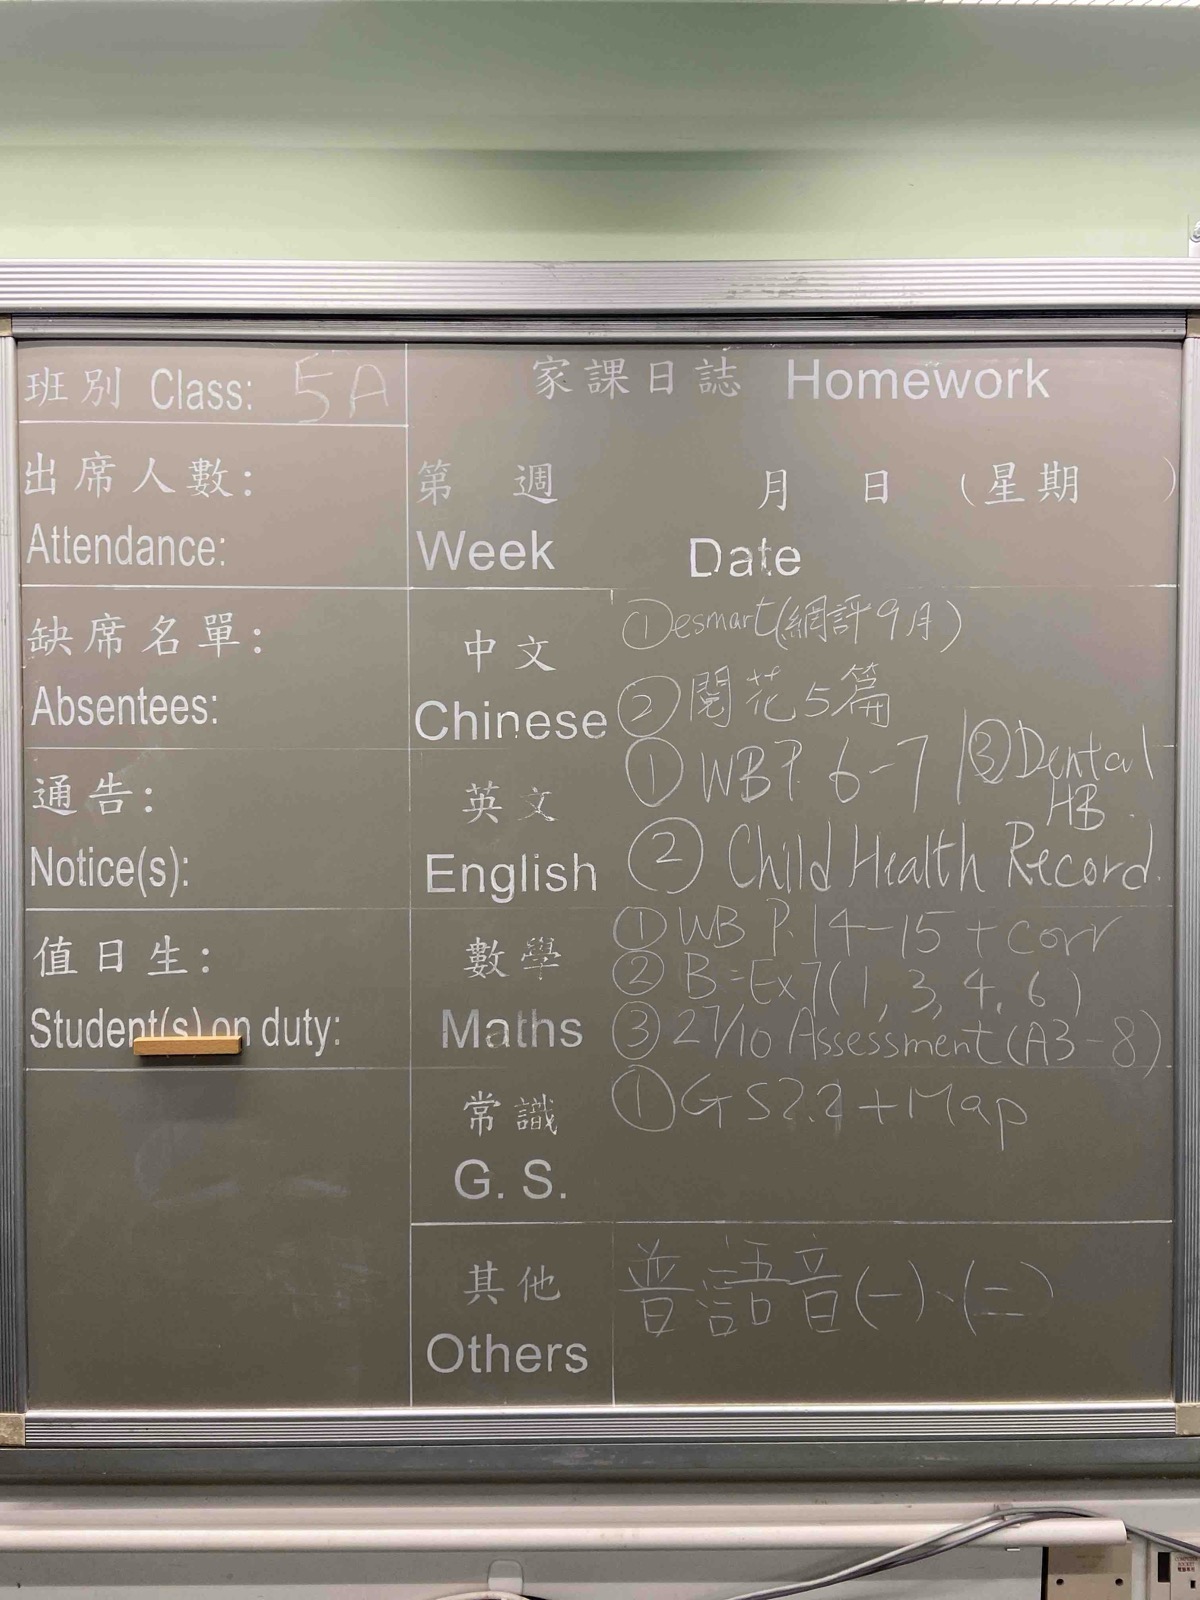 班別 Class: 5A
家課日誌 Homework
出席人數:
Attendance:
第 週 月 日 (星期 )
Week Date
缺席名單:
Absentees:
中文
Chinese
①esmart(網評9月)
②閱花5篇
通告:
Notice(s):
英文
English
①WB P. 6-7 | ③Dental HB.
②Child Health Record.
值日生:
Student(s) on duty:
數學
Maths
①WB P. 14-15 + corr
②B=Ex7(1, 3, 4, 6)
③27/10 Assessment (A3-8)
常識
G. S.
①GS2.2+Map
其他
Others
普語音(一)、(二)